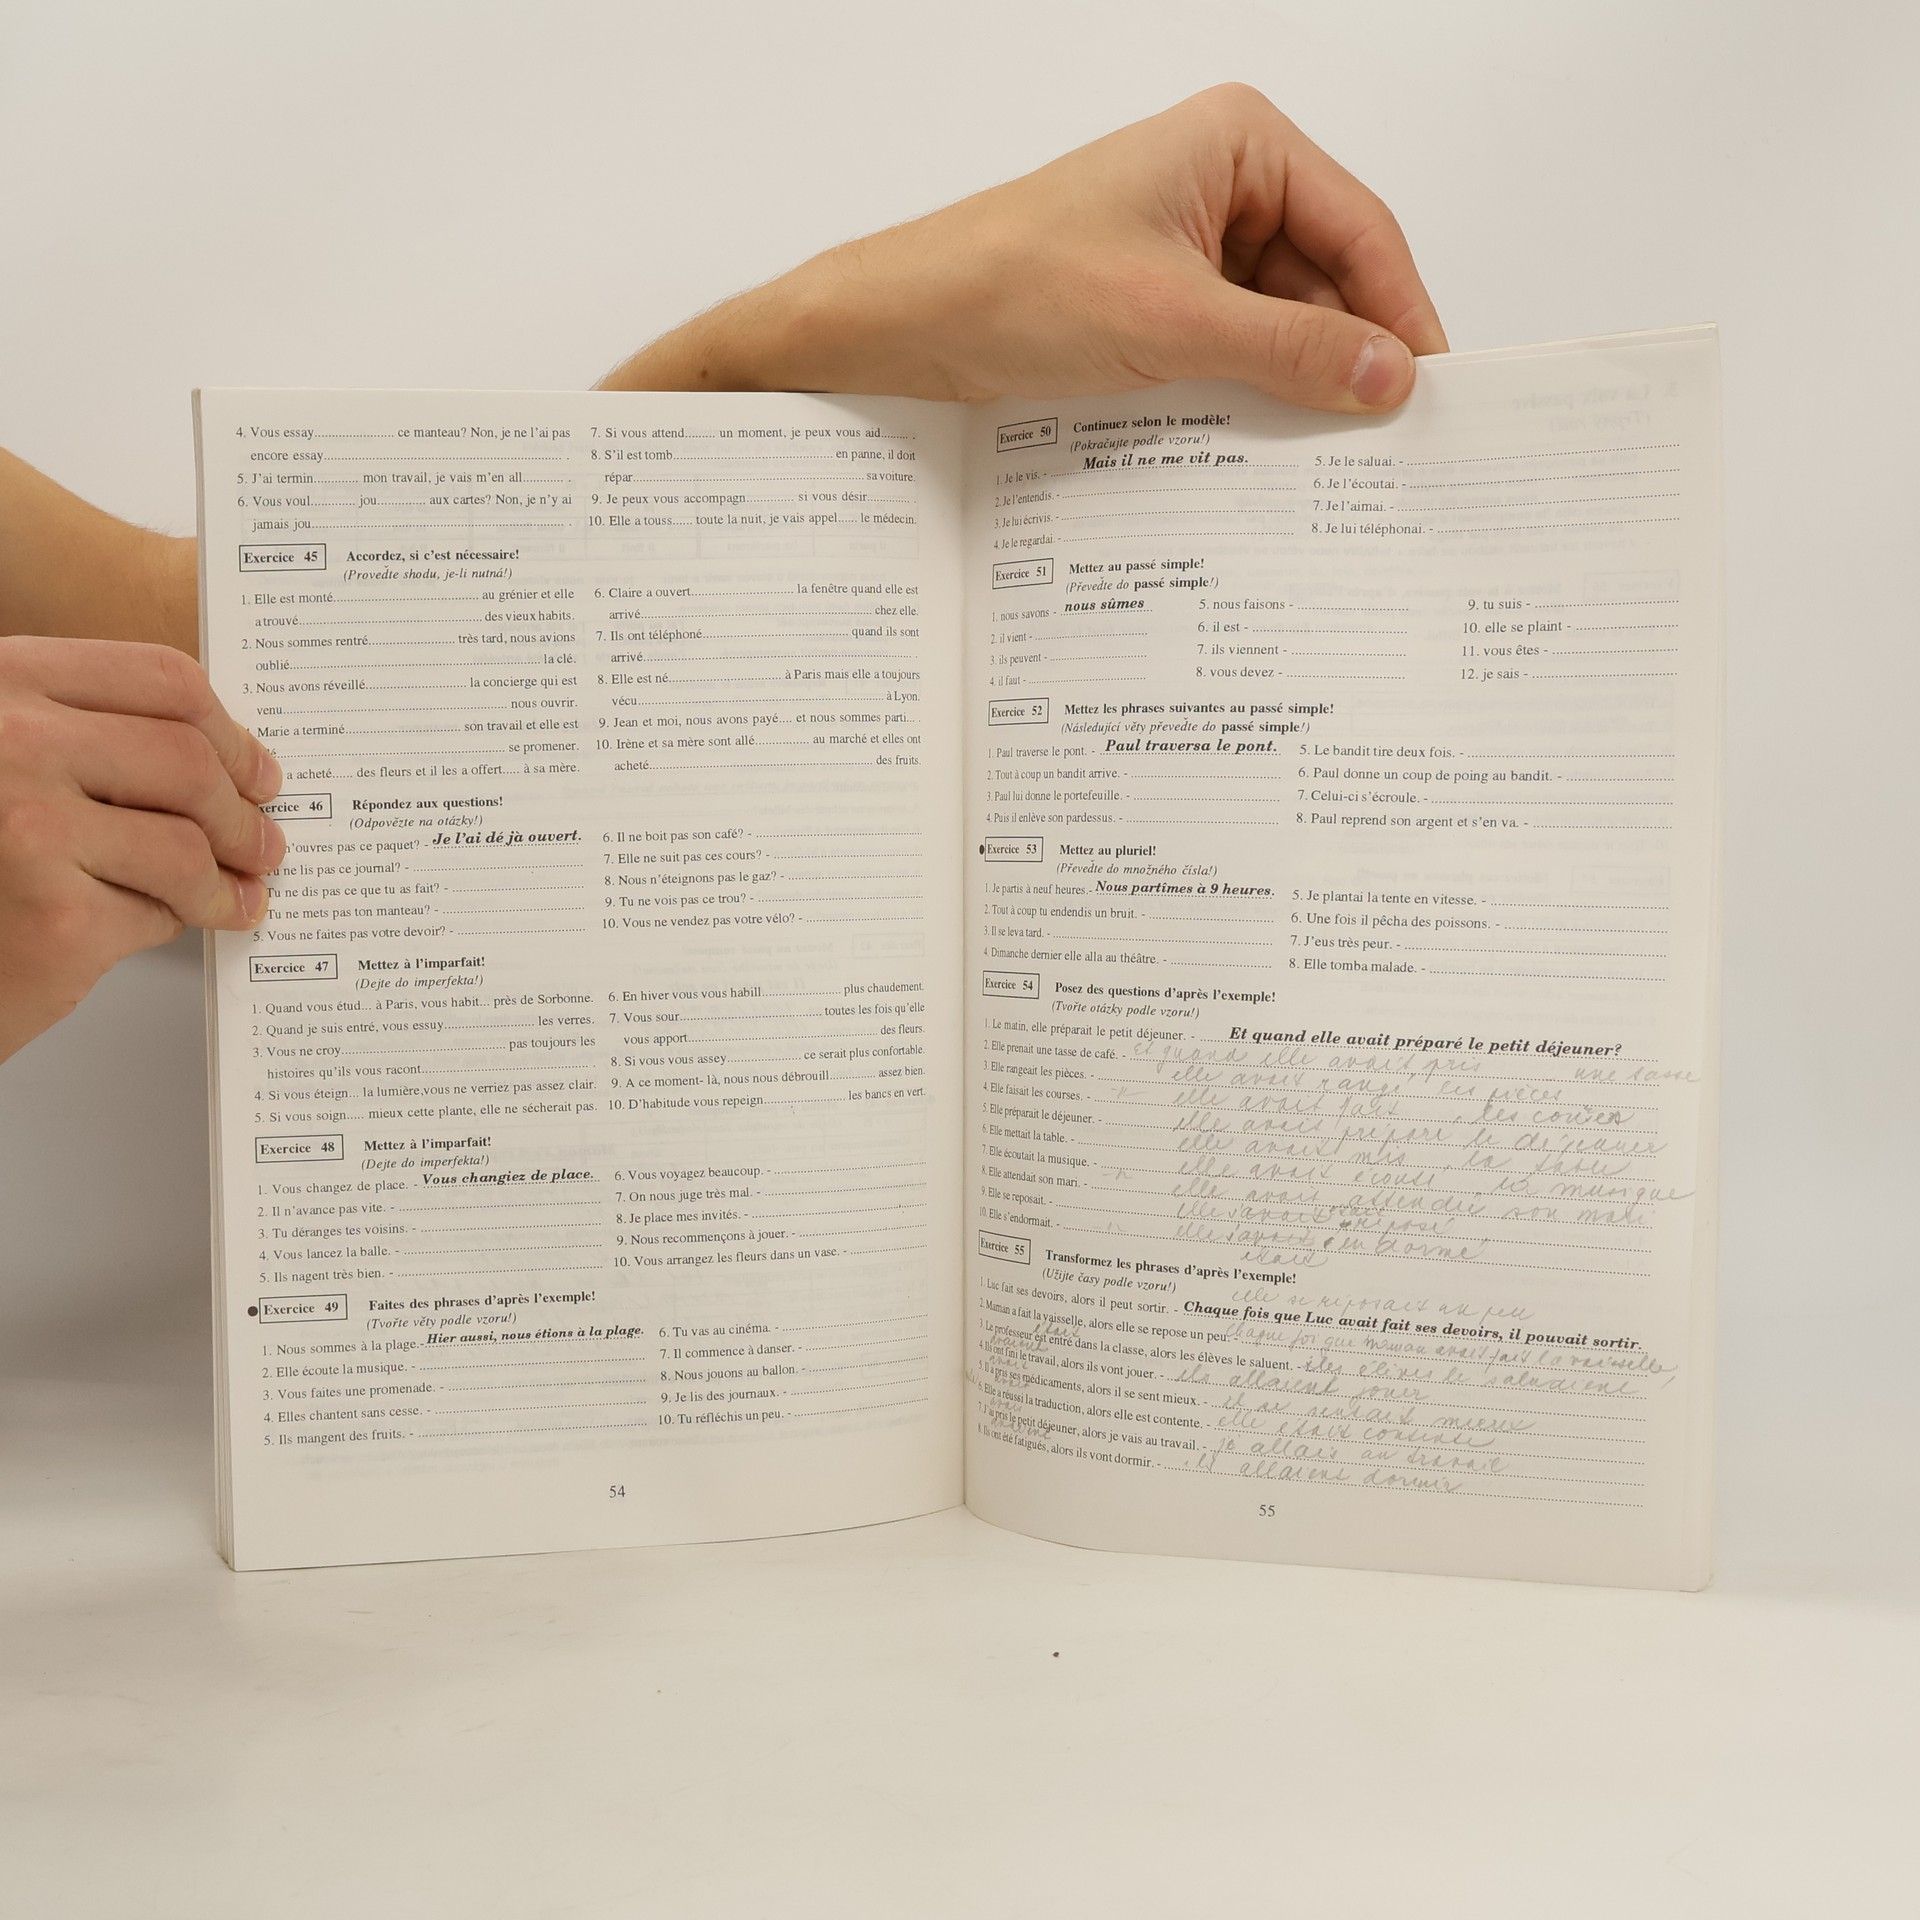 4. Vous essay....................... ce manteau? Non, je ne l'ai pas
encore essay.................................................................. .
5. J'ai termin............. mon travail, je vais m'en all............. .
6. Vous voul............ jou............ aux cartes? Non, je n'y ai
jamais jou..................................................................... .
7. Si vous attend......... un moment, je peux vous aid......... .
8. S'il est tomb.......................................... en panne, il doit
répar............................................................... sa voiture.
9. Je peux vous accompagn............. si vous désir............. .
10. Elle a touss...... toute la nuit, je vais appel...... le médecin.
Exercice 45 Accordez, si c'est nécessaire!
(Proveďte shodu, je-li nutná!)
1. Elle est monté....................................... au grénier et elle
a trouvé.................................................. des vieux habits.
2. Nous sommes rentré........................ très tard, nous avions
oublié..................................................................... la clé.
3. Nous avons réveillé............................ la concierge qui est
venu.................................................................. nous ouvrir.
Marie a terminé................................ son travail et elle est
lé............................................................. se promener.
a acheté...... des fleurs et il les a offert..... à sa mère.
6. Claire a ouvert............................ la fenêtre quand elle est
arrivé............................................................... chez elle.
7. Ils ont téléphoné........................................ quand ils sont
arrivé.......................................................................... .
8. Elle est né................................ à Paris mais elle a toujours
vécu.................................................................. à Lyon.
9. Jean et moi, nous avons payé.... et nous sommes parti... .
10. Irène et sa mère sont allé............... au marché et elles ont
acheté.............................................................. des fruits.
Exercice 46 Répondez aux questions!
(Odpovězte na otázky!)
n'ouvres pas ce paquet? - Je l'ai dé jà ouvert.
Tu ne lis pas ce journal? - ................................
Tu ne dis pas ce que tu as fait? - ................................
Tu ne mets pas ton manteau? - ................................
5. Vous ne faites pas votre devoir? - ................................
6. Il ne boit pas son café? - ................................
7. Elle ne suit pas ces cours? - ................................
8. Nous n'éteignons pas le gaz? - ................................
9. Tu ne vois pas ce trou? - ................................
10. Vous ne vendez pas votre vélo? - ................................
Exercice 47 Mettez à l'imparfait!
(Dejte do imperfekta!)
1. Quand vous étud... à Paris, vous habit... près de Sorbonne.
2. Quand je suis entré, vous essuy........................ les verres.
3. Vous ne croy............................................ pas toujours les
histoires qu'ils vous racont............................................ .
4. Si vous éteign... la lumière,vous ne verriez pas assez clair.
5. Si vous soign..... mieux cette plante, elle ne sécherait pas.
6. En hiver vous vous habill...................... plus chaudement.
7. Vous sour........................................ toutes les fois qu'elle
vous apport...................................................... des fleurs.
8. Si vous vous assey..................... ce serait plus confortable.
9. A ce moment- là, nous nous débrouill............ assez bien.
10. D'habitude vous repeign...................... les bancs en vert.
Exercice 48 Mettez à l'imparfait!
(Dejte do imperfekta!)
1. Vous changez de place. - Vous changiez de place.
2. Il n'avance pas vite. - ................................
3. Tu déranges tes voisins. - ................................
4. Vous lancez la balle. - ................................
5. Ils nagent très bien. - ................................
6. Vous voyagez beaucoup. - ................................
7. On nous juge très mal. - ................................
8. Je place mes invités. - ................................
9. Nous recommençons à jouer. - ................................
10. Vous arrangez les fleurs dans un vase. - ....................
Exercice 49 Faites des phrases d'après l'exemple!
(Tvořte věty podle vzoru!)
1. Nous sommes à la plage.- Hier aussi, nous étions à la plage.
2. Elle écoute la musique. - ................................
3. Vous faites une promenade. - ................................
4. Elles chantent sans cesse. - ................................
5. Ils mangent des fruits. - ................................
6. Tu vas au cinéma. - ................................
7. Il commence à danser. - ................................
8. Nous jouons au ballon. - ................................
9. Je lis des journaux. - ................................
10. Tu réfléchis un peu. - ................................
54
Exercice 50 Continuez selon le modèle!
(Pokračujte podle vzoru!)
1. Je le vis. - Mais il ne me vit pas.
2. Je l'entendis. - ................................
3. Je lui écrivis. - ................................
4. Je le regardai. - ................................
5. Je le saluai. - ................................
6. Je l'écoutai. - ................................
7. Je l'aimai. - ................................
8. Je lui téléphonai. - ................................
Exercice 51 Mettez au passé simple!
(Převeďte do passé simple!)
1. nous savons - nous sûmes
2. il vient - ....................
3. ils peuvent - ....................
4. il faut - ....................
5. nous faisons - ....................
6. il est - ....................
7. ils viennent - ....................
8. vous devez - ....................
9. tu suis - ....................
10. elle se plaint - ....................
11. vous êtes - ....................
12. je sais - ....................
Exercice 52 Mettez les phrases suivantes au passé simple!
(Následující věty převeďte do passé simple!)
1. Paul traverse le pont. - Paul traversa le pont.
2. Tout à coup un bandit arrive. - ....................
3. Paul lui donne le portefeuille. - ....................
4. Puis il enlève son pardessus. - ....................
5. Le bandit tire deux fois. - ....................
6. Paul donne un coup de poing au bandit. - ....................
7. Celui-ci s'écroule. - ....................
8. Paul reprend son argent et s'en va. - ....................
Exercice 53 Mettez au pluriel!
(Převeďte do množného čísla!)
1. Je partis à neuf heures.- Nous partîmes à 9 heures.
2. Tout à coup tu endendis un bruit. - ....................
3. Il se leva tard. - ....................
4. Dimanche dernier elle alla au théâtre. - ....................
5. Je plantai la tente en vitesse. - ....................
6. Une fois il pêcha des poissons. - ....................
7. J'eus très peur. - ....................
8. Elle tomba malade. - ....................
Exercice 54 Posez des questions d'après l'exemple!
(Tvořte otázky podle vzoru!)
1. Le matin, elle préparait le petit déjeuner. - Et quand elle avait préparé le petit déjeuner?
2. Elle prenait une tasse de café. - Et quand elle avait pris une tasse
3. Elle rangeait les pièces. - elle avait rangé les pièces
4. Elle faisait les courses. - elle avait fait les courses
5. Elle préparait le déjeuner. - elle avait préparé le déjeuner
6. Elle mettait la table. - elle avait mis la table
7. Elle écoutait la musique. - elle avait écouté la musique
8. Elle attendait son mari. - elle avait attendu son mari
9. Elle se reposait. - elle s'était reposé
10. Elle s'endormait. - elle s'avait endormé
était
Exercice 55 Transformez les phrases d'après l'exemple!
(Užijte časy podle vzoru!)
elle se reposait un peu
1. Luc fait ses devoirs, alors il peut sortir. - Chaque fois que Luc avait fait ses devoirs, il pouvait sortir.
2. Maman a fait la vaisselle, alors elle se repose un peu. - Chaque foi que maman avait fait la vaisselle,
3. Le professeur est entré dans la classe, alors les élèves le saluent. - les élèves le saluaient
4. Ils ont fini le travail, alors ils vont jouer. - ils allaient jouer
5. Il a pris ses médicaments, alors il se sent mieux. - il se sentait mieux
6. Elle a réussi la traduction, alors elle est contente. - elle était contente
7. J'ai pris le petit déjeuner, alors je vais au travail. - je allais au travail
8. Ils ont été fatigués, alors ils vont dormir. - ils allaient dormir
55